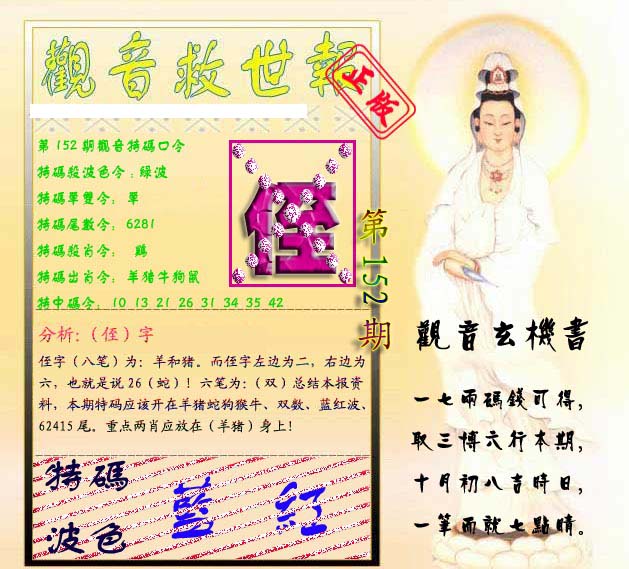 觀音救世報
正版
第152期觀音特碼口令
特碼殺波色令:綠波
特碼單雙令: 單
特碼尾數令: 6281
特碼殺肖令: 鷄
特碼出肖令: 羊猪牛狗鼠
特中碼令: 10 13 21 26 31 34 35 42
侄
第152期
分析:(侄)字
侄字(八笔)为:羊和猪。而侄字左边为二,右边为
六,也就是说26(蛇)!六笔为:(双)总结本报资
料,本期特码应该开在羊猪蛇狗猴牛、双数、蓝红波、
62415尾。重点两肖应放在(羊猪)身上!
特碼
波色
藍 紅
觀音玄機書
一七兩碼錢可得,
取三博六行本期,
十月初八吉時日,
一筆而就七點晴。